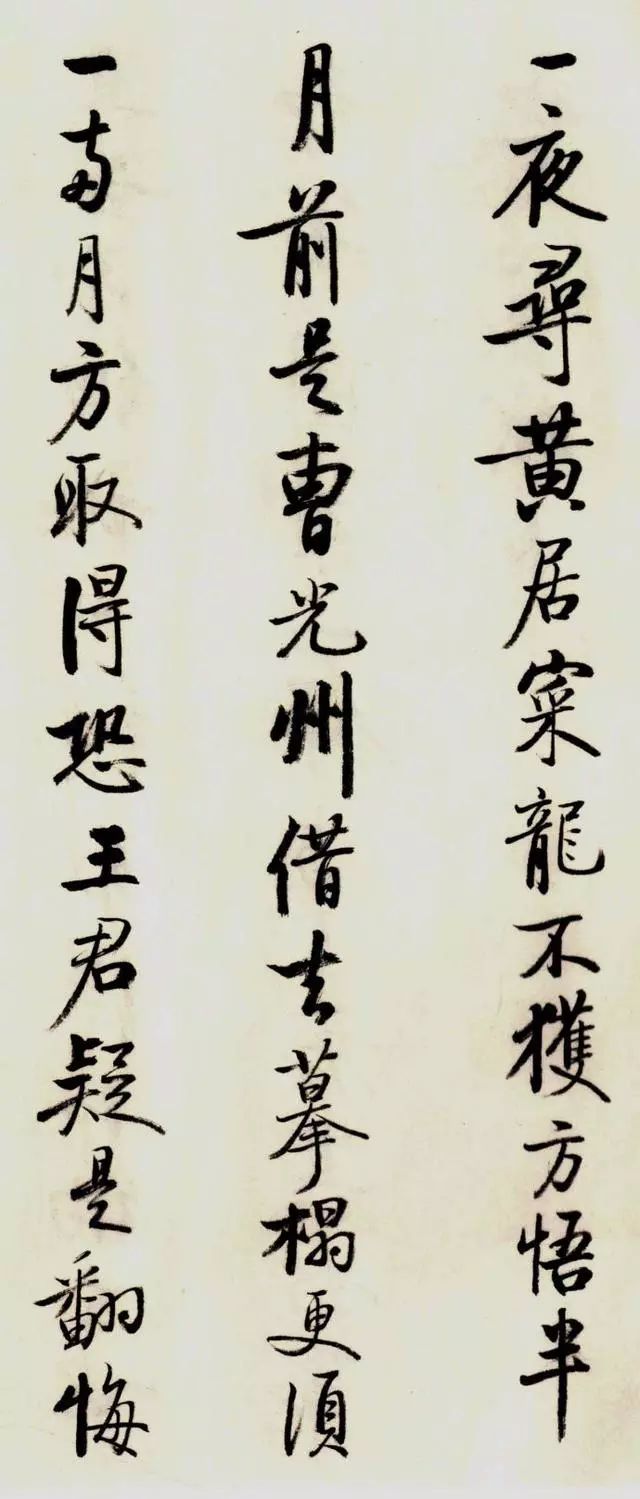 一夜尋黄居寀龍不獲方悟半
月前是曹光州借去摹榻更須
一兩月方取得恐王君疑是翻悔